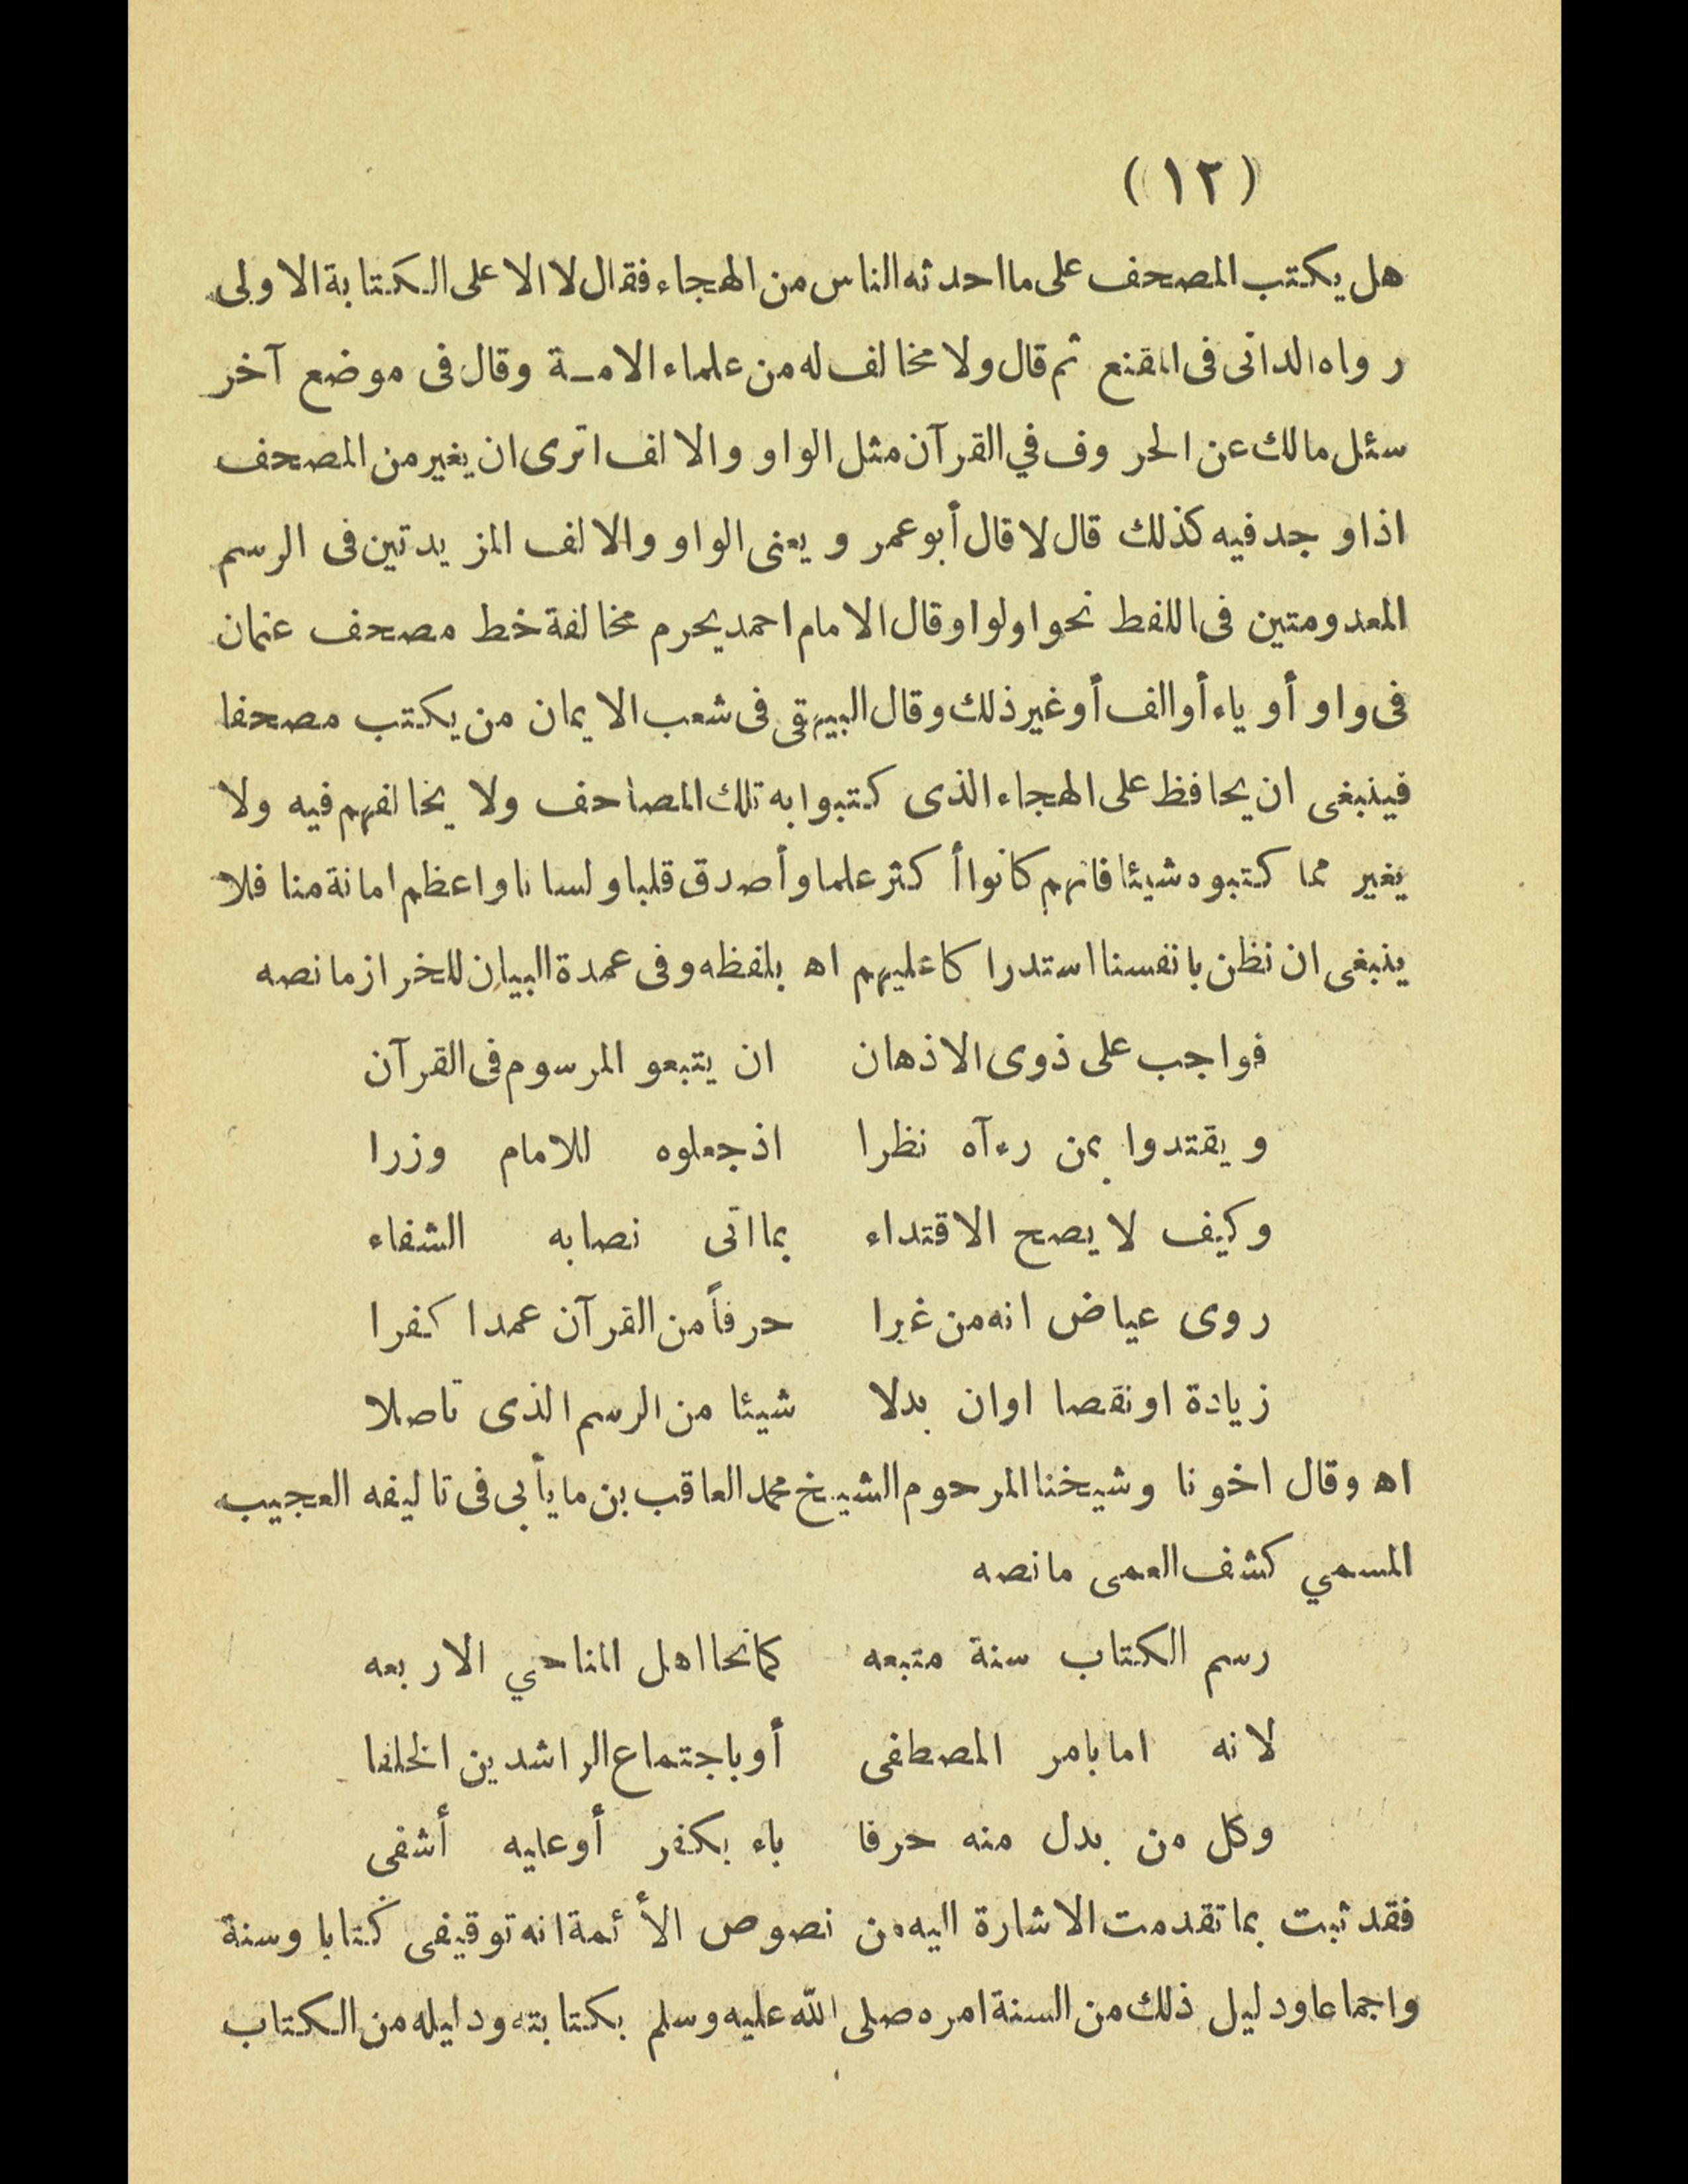 (١٢)
هل يكتب المصحف على ما احدثه الناس من الهجاء فقال لا الا على الكتابة الاولى
رواه الدانى فى المقنع ثم قال ولا مخالف له من علماء الامـة وقال فى موضع آخر
سئل مالك عن الحروف في القرآن مثل الواو والالف اترى ان يغير من المصحف
اذا وجد فيه كذلك قال لا قال أبو عمر ويعنى الواو والالف المزيدتين فى الرسم
المعدومتين فى اللفظ نحو اولوا وقال الامام احمد يحرم مخالفة خط مصحف عثمان
فى واو أو ياء أو الف أو غير ذلك وقال البيهقى فى شعب الايمان من يكتب مصحفا
فينبغى ان يحافظ على الهجاء الذى كتبوا به تلك المصاحف ولا يخالفهم فيه ولا
يغير مما كتبوه شيئا فانهم كانوا أكثر علما وأصدق قلبا ولسانا واعظم امانة منا فلا
ينبغى ان نظن بانفسنا استدراكا عليهم اه بلفظه وفى عمدة البيان للخراز ما نصه
فواجب على ذوى الاذهان ان يتبعو المرسوم فى القرآن
ويقتدوا بمن رءآه نظرا اذ جعلوه للامام وزرا
وكيف لا يصح الاقتداء بما اتى نصا به الشفاء
روى عياض انه من غيرا حرفاً من القرآن عمدا كفرا
زيادة او نقصا اوان بدلا شيئا من الرسم الذى تاصلا
اه وقال اخونا وشيخنا المرحوم الشيخ محمد العاقب بن مايأبى فى تاليفه العجيب
المسمي كشف العمى ما نصه
رسم الكتاب سنة متبعه كما نحا اهل المناحي الاربعه
لانه اما بامر المصطفى أو باجتماع الراشدين الخلفا
وكل من بدل منه حرفا باء بكفر أو عليه أشفى
فقد ثبت بما تقدمت الاشارة اليه من نصوص الأئمة انه توقيفى كتابا وسنة
واجماعا ودليل ذلك من السنة امره صلى الله عليه وسلم بكتابته ودليله من الكتاب